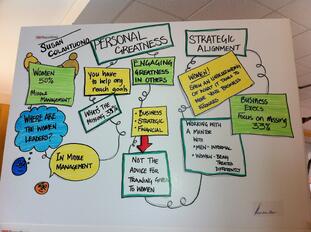 SUSAN
COLANTUONO
PERSONAL
GREATNESS
ENGAGING
GREATNESS
IN OTHERS
STRATEGIC
ALIGNMENT
WOMEN
50%
MIDDLE
MANAGEMENT
YOU HAVE
TO HELP ORG
REACH GOALS
WHAT'S THE
MISSING 33%
• BUSINESS
• STRATEGIC
• FINANCIAL
WOMEN!
OF WHAT IT TAKES TO
MOVE YOUR BUSINESS
FORWARD
BUSINESS
EXECS
FOCUS ON MISSING
33%
WHERE ARE
THE WOMEN
LEADERS?
IN MIDDLE
MANAGEMENT
NOT THE
ADVICE FOR
TRAINING GIVEN
TO WOMEN
WORKING WITH
A MENTOR
WITH
• MEN - INFORMAL
• WOMEN - BEING
TREATED
DIFFERENTLY